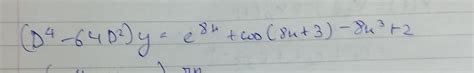 (D⁴-64D²)y = e⁸ˣ + cos(8x+3) - 8x³+2